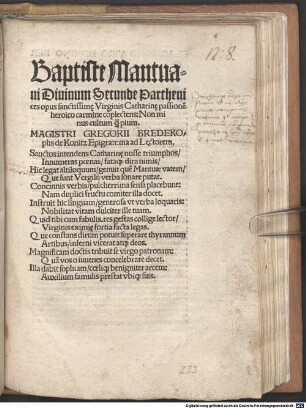 12:8.
Baptiste Mantua-
ni Divinum Secunde Parthenices
opus sanctissimę Virginis Catharinę passionē
heroico carmine cōplectens: Non mi
nus cultum q̄ pium.
MAGISTRI GREGORII BREDEKO
phs de Konitz Epigramma ad Lectorem.
Sanctos intendens Catharinę nosse triumphos/
Innumeras pœnas/ fatiq; dira nimis/
Hic legat altiloquum/genuit quē Mantua: vatem/
Que sunt Vergilij verba sonare putat.
Concinnis verbis/pulcherrima sensa placebunt:
Nam duplici fructu comiter illa docet.
Instruit hic linguam/generosa vt verba loquaris:
Nobilitat vitam dulciter ille tuam.
Quid tibi cum fabulis, res gestas collige lector/
Virginis eximię fortia facta legas.
Que constans dirum potuit superare thyrannum
Artibus/inferni vicerat atq; deos.
Magnificam doctis tribuit se virgo patronam:
Quā vos o iuuenes concelebrare decet.
Illa dabit sophiam/cœliq; benigniter arcem:
Auxilium famulis prestat vbiq; suis.
233